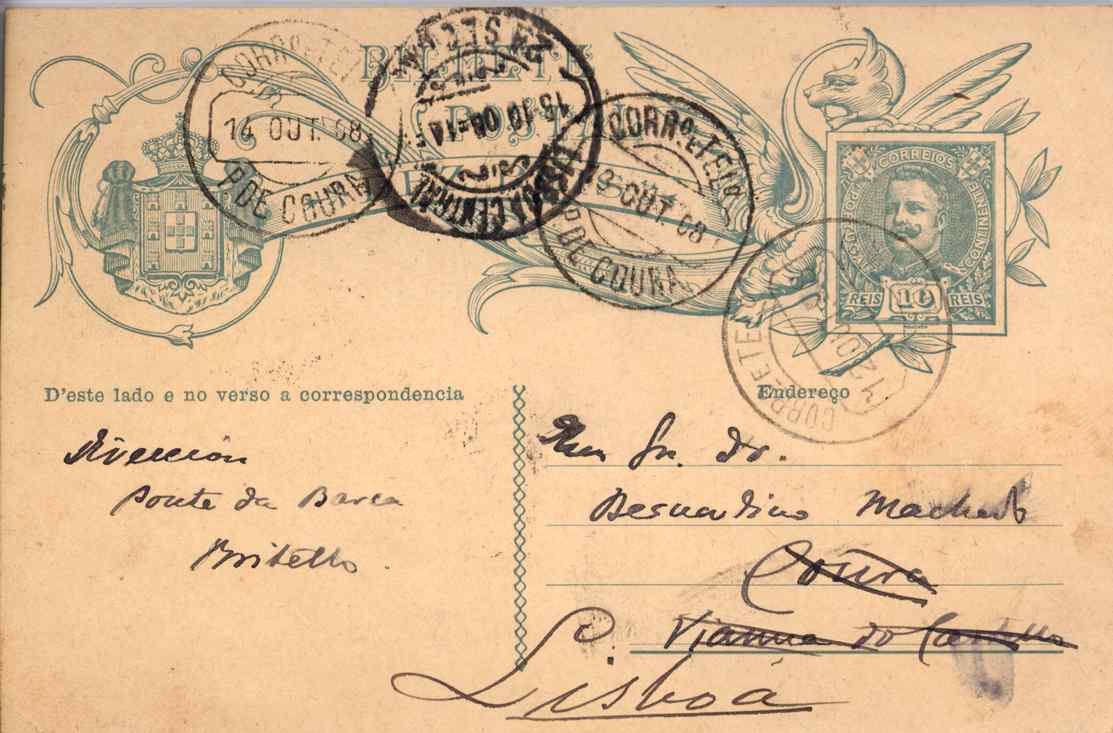 BILHETE
POSTAL
CORRO. E TEL.
14 OUT. 08
P. DE COURA
2A SECÇÃO
15 10 08
CENTRAL
CORRO. E TELO.
OUT. 08
P. DE COURA
CORREIOS
PORTUGAL
CONTINENTE
REIS 10 REIS
CORR. E TE
D'este lado e no verso a correspondencia
Endereço
Direccion
Ponte da Barca
Britello
Exmo Sr. Dr.
Bernardino Machado
Coura
Vianna do Castello
Lisboa